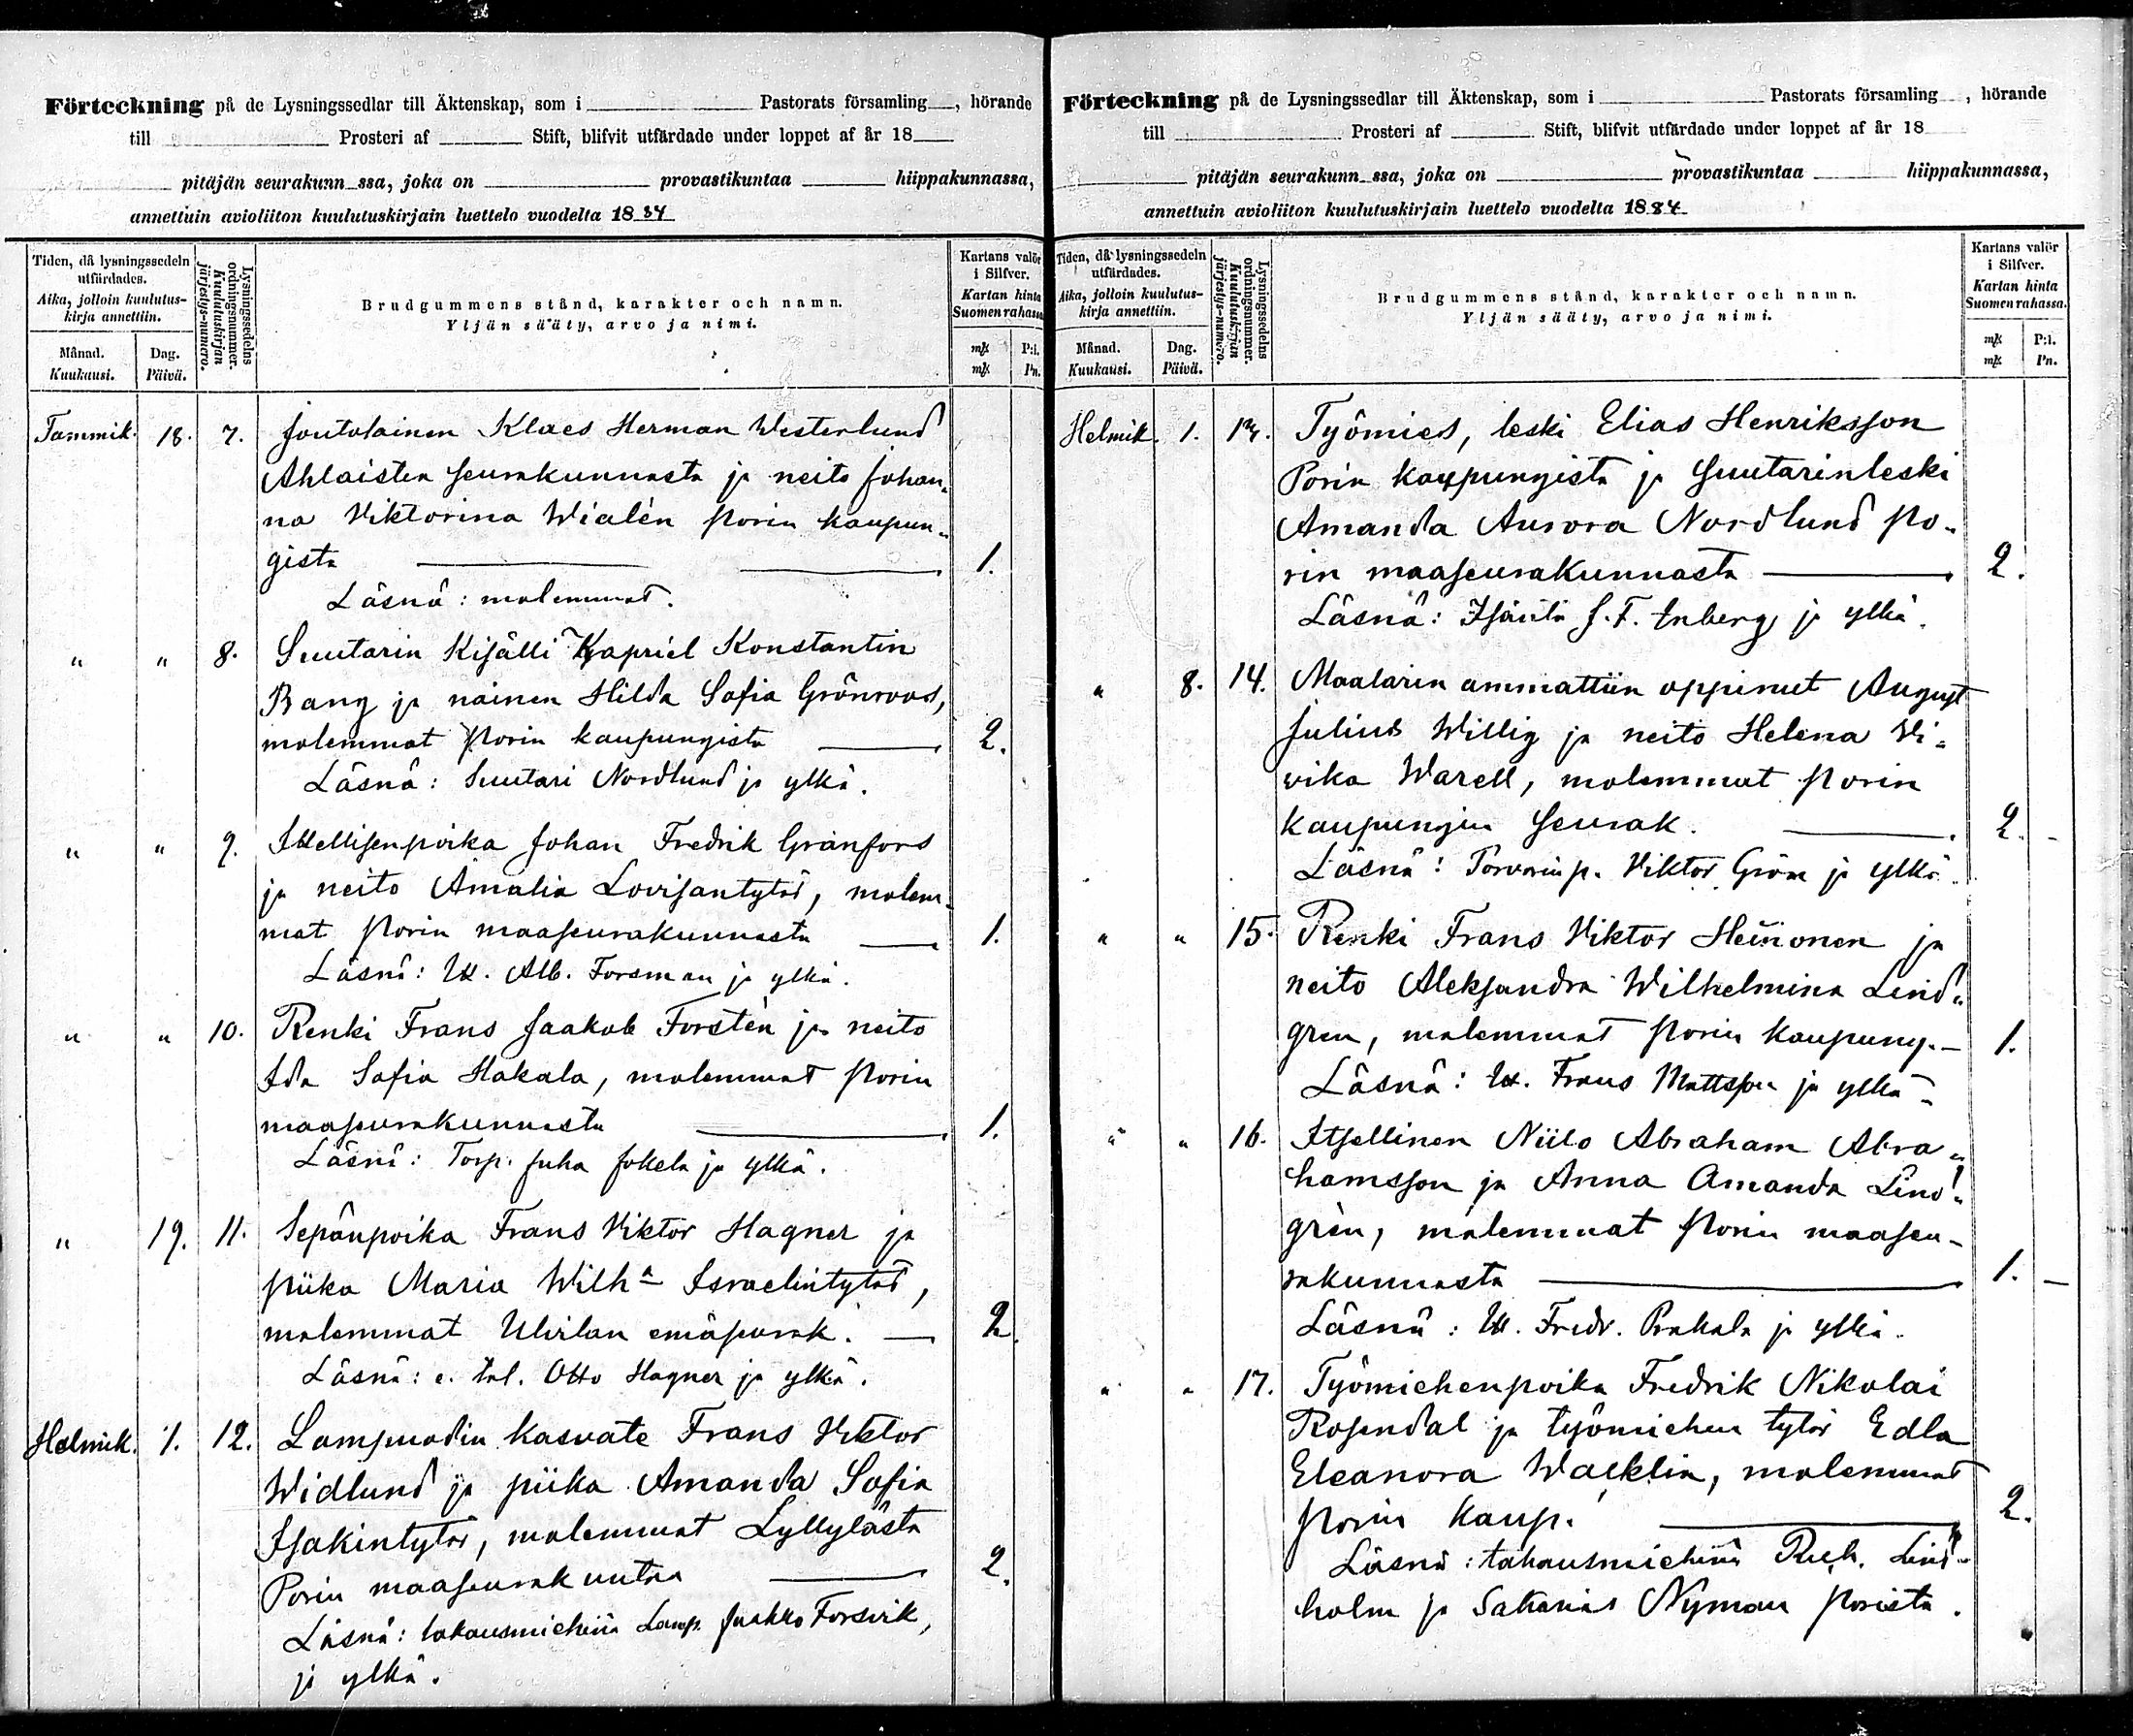 Förteckning på de Lysningssedlar till Äktenskap, som i Pastorats församling, hörande
till Prosteri af Stift, blifvit utfärdade under loppet af år 18
pitäjän seurakunn ssa, joka on provastikuntaa hiippakunnassa,
annettuin avioliiton kuulutuskirjain luettelo vuodelta 1884
Tiden, då lysningssedeln utfärdades.
Aika, jolloin kuulutus-kirja annettiin.
Månad.
Kuukausi.
Dag.
Päivä.
Lysningssedelns ordningsnummer.
Kuulutuskirjan järjestys-numero.
Brudgummens stånd, karakter och namn.
Yljän sääty, arvo ja nimi.
Kartans valör i Silfver.
Kartan hinta Suomen rahassa
mk P:i.
mk Pn.
Tammik. 18. 7. Joutolainen Klaes Herman Westerlund
Ahlaisten seurakunnasta ja neito Johan„
na Viktorina Wialén Porin kaupun„
gista 1.
Läsnä: molemmat.
" " 8. Suutarin Kisälli Kapriel Konstantin
Bang ja nainen Hilda Sofia Grönroos,
molemmat Porin kaupungista 2.
Läsnä: Suutari Nordlund ja ylkä.
" " 9. Itsellisenpoika Johan Fredrik Granfors
ja neito Amalia Lovisantytär, molem„
mat Porin maaseurakunnasta 1.
Läsnä: Itt. Alb. Forsman ja ylkä.
" " 10. Renki Frans Jaakob Forstén ja neito
Ida Sofia Hakala, molemmat Porin
maaseurakunnasta 1.
Läsnä: Torp. Juha Jokela ja ylkä.
" 19. 11. Sepänpoika Frans Viktor Hagner ja
piika Maria Wilhª Israelintytär,
molemmat Ulvilan emäseurak. 2.
Läsnä: e. tal. Otto Hagner ja ylkä.
Helmik. 1. 12. Lampuodin kasvate Frans Viktor
Widlund ja piika Amanda Sofia
Isakintytär, molemmat Lyllylästä
Porin maaseurakuntaa 2.
Läsnä: takausmiehinä Lamp. Jaakko Forsvik,
ja ylkä.
Förteckning på de Lysningssedlar till Äktenskap, som i Pastorats församling, hörande
till Prosteri af Stift, blifvit utfärdade under loppet af år 18
pitäjän seurakunn ssa, joka on provastikuntaa hiippakunnassa,
annettuin avioliiton kuulutuskirjain luettelo vuodelta 1884
Tiden, då lysningssedeln utfärdades.
Aika, jolloin kuulutus-kirja annettiin.
Månad.
Kuukausi.
Dag.
Päivä.
Lysningssedelns ordningsnummer.
Kuulutuskirjan järjestys-numero.
Brudgummens stånd, karakter och namn.
Yljän sääty, arvo ja nimi.
Kartans valör i Silfver.
Kartan hinta Suomen rahassa.
mk P:i.
mk Pn.
Helmik. 1. 13. Työmies, leski Elias Henriksson
Porin kaupungista ja Suutarinleski
Amanda Aurora Nordlund Po„
rin maaseurakunnasta 2.
Läsnä: Isäntä J. F. Enberg ja ylkä.
" 8. 14. Maalarin ammattiin oppinut August
Julius Willig ja neito Helena Vi„
vika Warell, molemmat Porin
kaupungin seurak. 2. -
Läsnä: Torvarinp. Viktor Grön ja ylkä.
" " 15. Renki Frans Viktor Heinonen ja
neito Aleksandra Wilhelmina Lind„
gren, molemmat Porin kaupung. 1.
Läsnä: Itt. Frans Mattsson ja ylkä.
" " 16. Itsellinen Niilo Abraham Abra„
hamsson ja Anna Amanda Lind„
grén, molemmat Porin maaseu„
rakunnasta 1. -
Läsnä: Itt. Fredr. Prakala ja ylkä.
" " 17. Työmiehenpoika Fredrik Nikolai
Rosendal ja työmiehen tytär Edla
Eleanora Wacklin, molemmat
Porin kaup. 2.
Läsnä: takausmiehinä Rich. Lind„
holm ja Sakarias Nyman Porista.